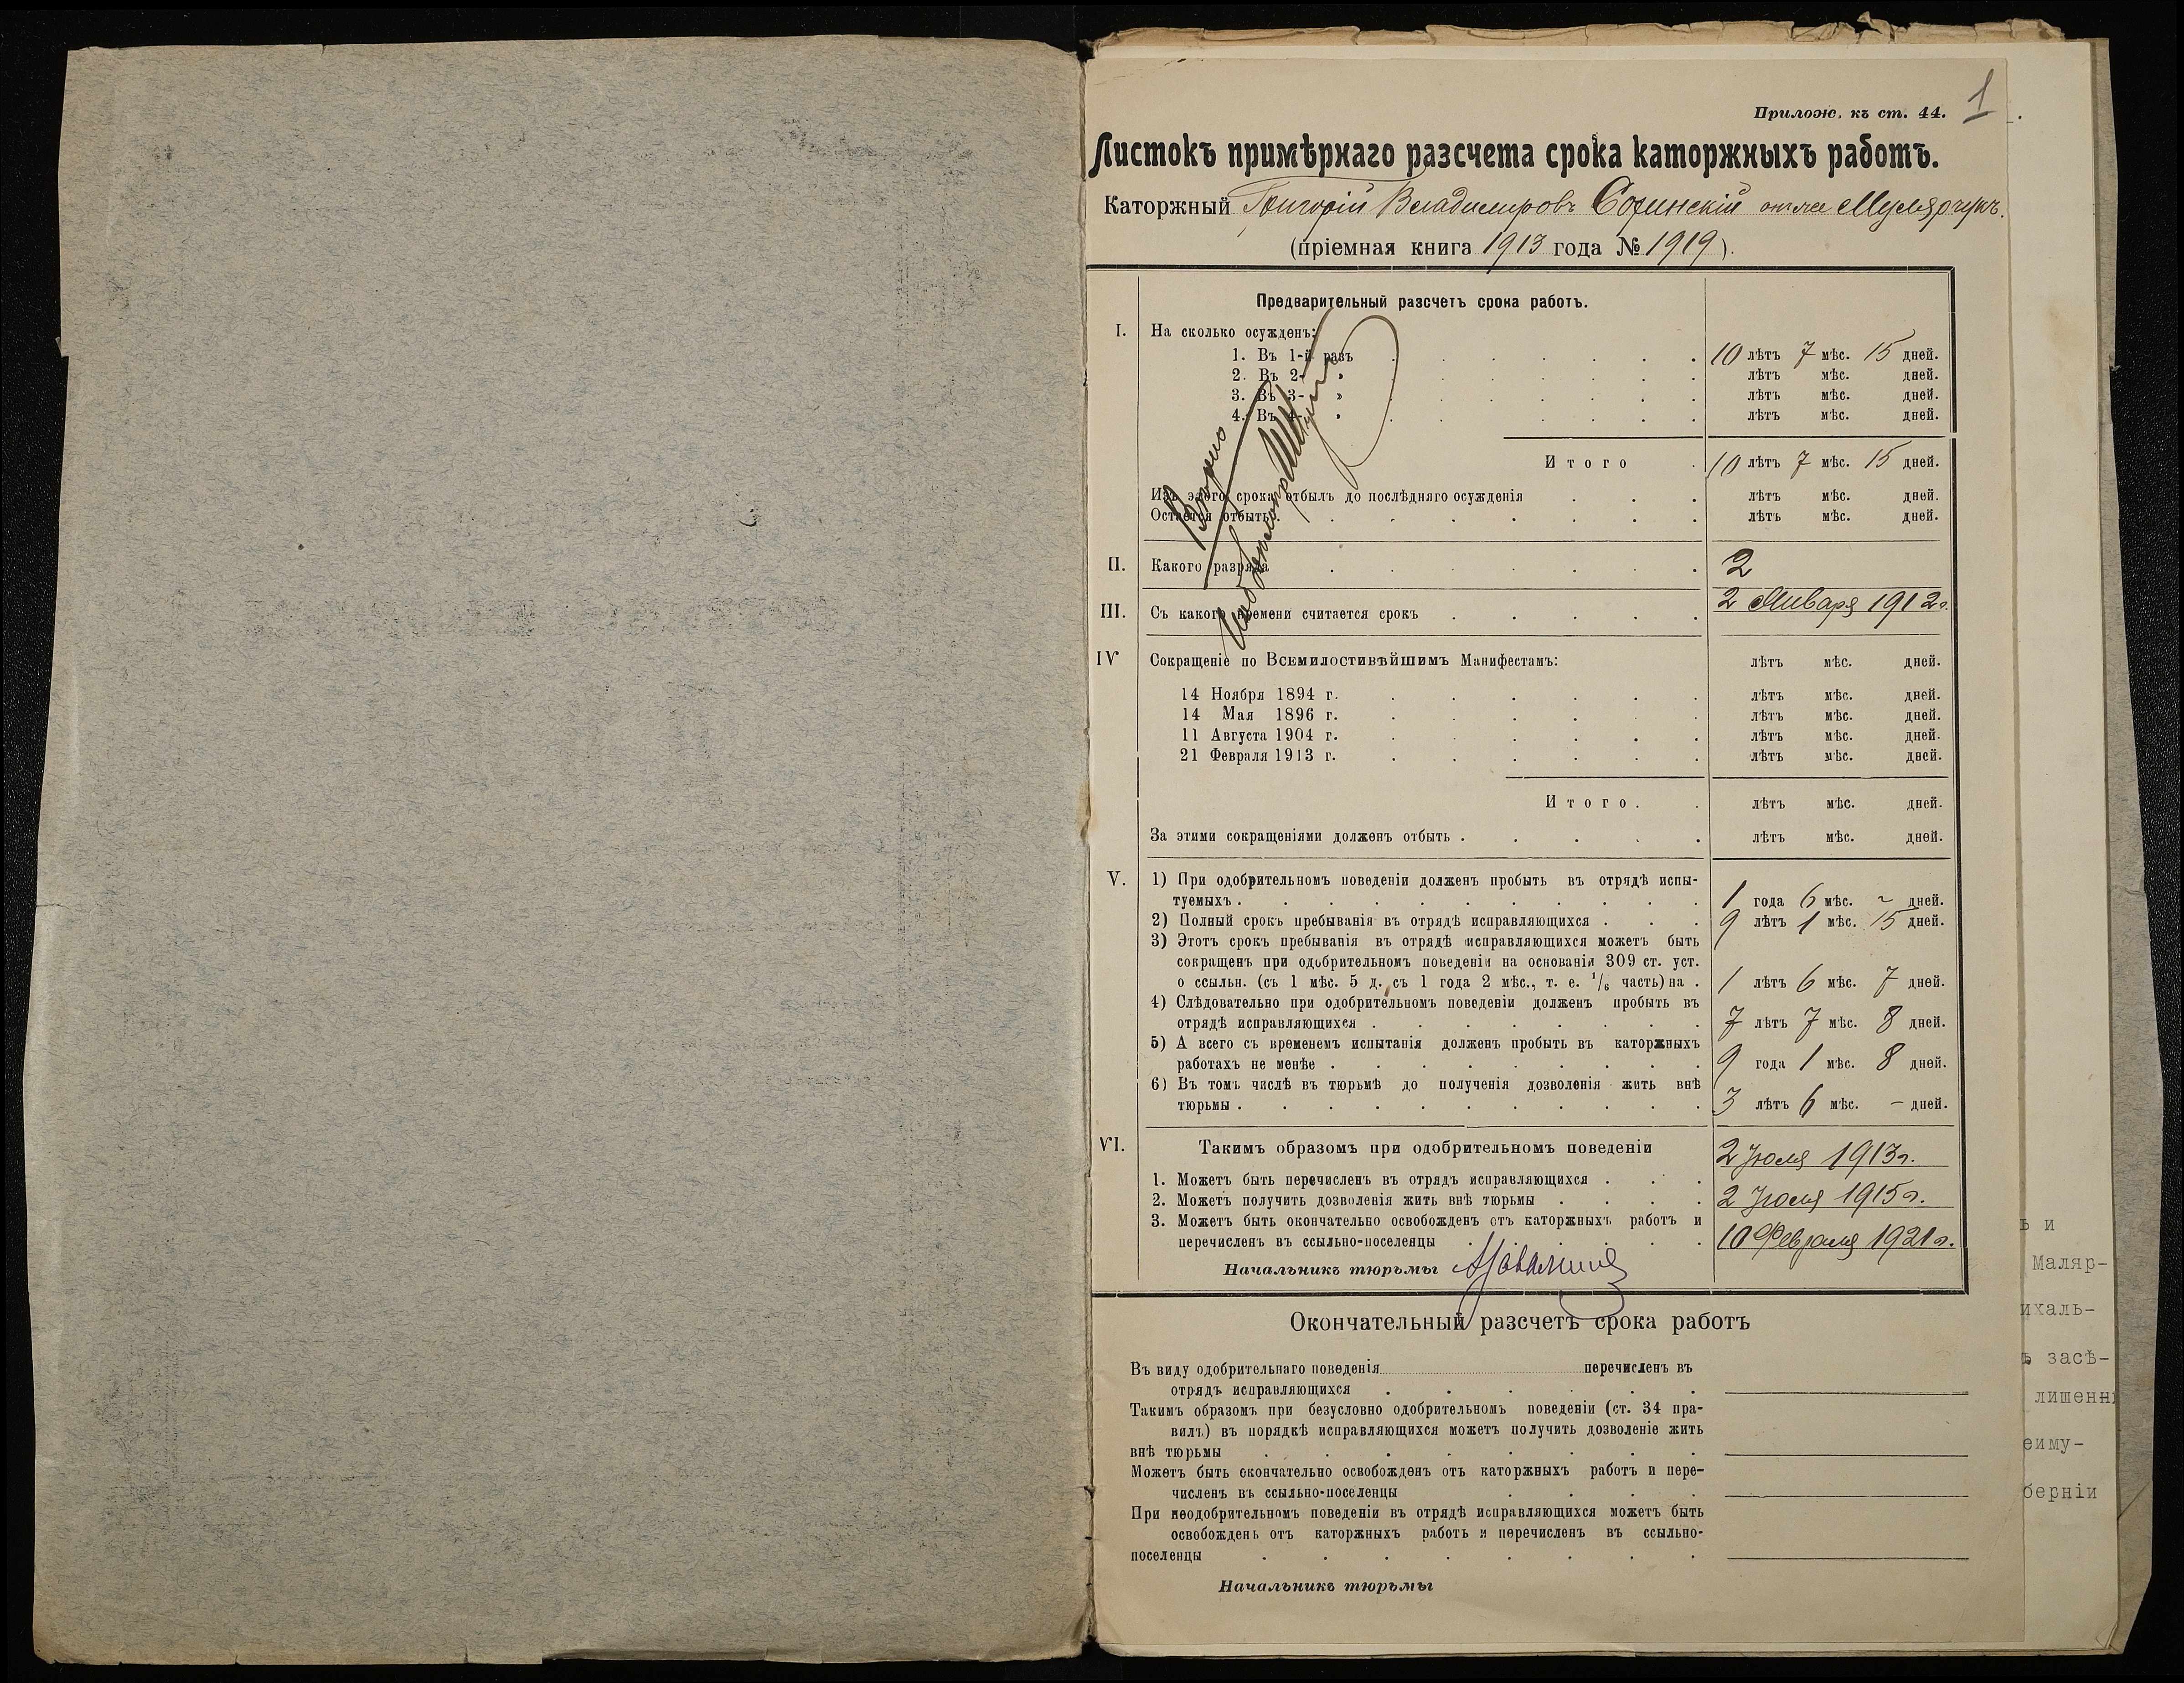 1
Прилож. къ ст. 44.
Листокъ примѣрнаго разсчета срока каторжныхъ работъ.
Каторжный Григорій Владимировъ Софинскій онъ же Мулярчукъ.
(пріемная книга 1913 года № 1919).
Предварительный разсчетъ срока работъ.
I. На сколько осужденъ:
1. Въ 1-й разъ 10 лѣтъ 7 мѣс. 15 дней.
2. Въ 2- » лѣтъ мѣс. дней.
3. Въ 3- » лѣтъ мѣс. дней.
4. Въ 4- » лѣтъ мѣс. дней.
Итого 10 лѣтъ 7 мѣс. 15 дней.
Изъ этого срока отбылъ до послѣдняго осужденія лѣтъ мѣс. дней.
Остается отбыть лѣтъ мѣс. дней.
Вѣрно
II. Какого разряда 2
III. Съ какого времени считается срокъ 2 Января 1912 г.
IV Сокращеніе по Всемилостивѣйшимъ Манифестамъ: лѣтъ мѣс. дней.
14 Ноября 1894 г. лѣтъ мѣс. дней.
14 Мая 1896 г. лѣтъ мѣс. дней.
11 Августа 1904 г. лѣтъ мѣс. дней.
21 Февраля 1913 г. лѣтъ мѣс. дней.
Итого. лѣтъ мѣс. дней.
За этими сокращеніями долженъ отбыть. лѣтъ мѣс. дней.
V. 1) При одобрительномъ поведеніи долженъ пробыть въ отрядѣ испы-
туемыхъ. 1 года 6 мѣс. ~ дней.
2) Полный срокъ пребыванія въ отрядѣ исправляющихся. 9 лѣтъ 1 мѣс. 15 дней.
3) Этотъ срокъ пребыванія въ отрядѣ исправляющихся можетъ быть
сокращенъ при одобрительномъ поведеніи на основаніи 309 ст. уст.
о ссыльн. (съ 1 мѣс. 5 д. съ 1 года 2 мѣс., т. е. 1/6 часть) на. 1 лѣтъ 6 мѣс. 7 дней.
4) Слѣдовательно при одобрительномъ поведеніи долженъ пробыть въ
отрядѣ исправляющихся. 7 лѣтъ 7 мѣс. 8 дней.
5) А всего съ временемъ испытанія долженъ пробыть въ каторжныхъ
работахъ не менѣе. 9 года 1 мѣс. 8 дней.
6) Въ томъ числѣ въ тюрьмѣ до полученія дозволенія жить внѣ
тюрьмы. 3 лѣтъ 6 мѣс. – дней.
VI. Такимъ образомъ при одобрительномъ поведеніи
1. Можетъ быть перечисленъ въ отрядъ исправляющихся. 2 Іюля 1913 г.
2. Можетъ получить дозволенія жить внѣ тюрьмы. 2 Іюля 1915 г.
3. Можетъ быть окончательно освобожденъ отъ каторжныхъ работъ и
перечисленъ въ ссыльно-поселенцы 10 Февраля 1921 г.
Начальникъ тюрьмы
Окончательный разсчетъ срока работъ
Въ виду одобрительнаго поведенія перечисленъ въ
отрядъ исправляющихся.
Такимъ образомъ при безусловно одобрительномъ поведеніи (ст. 34 пра-
вилъ) въ порядкѣ исправляющихся можетъ получить дозволеніе жить
внѣ тюрьмы.
Можетъ быть окончательно освобожденъ отъ каторжныхъ работъ и пере-
численъ въ ссыльно-поселенцы
При неодобрительномъ поведеніи въ отрядѣ исправляющихся можетъ быть
освобожденъ отъ каторжныхъ работъ и перечисленъ въ ссыльно-
поселенцы
Начальникъ тюрьмы
ъ и
Маляр-
ихаль-
ъ засѣ-
лишенн
еиму-
берніи